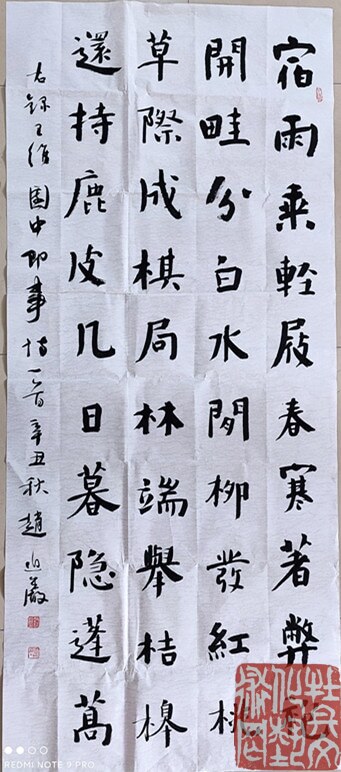 宿雨乘輕屐春寒著弊袍
開畦分白水間柳發紅桃
草際成棋局林端舉桔槔
還持鹿皮几日暮隐蓬蒿
右錄王維園中即事诗一首辛丑秋趙
REDMI NOTE 9 PRO